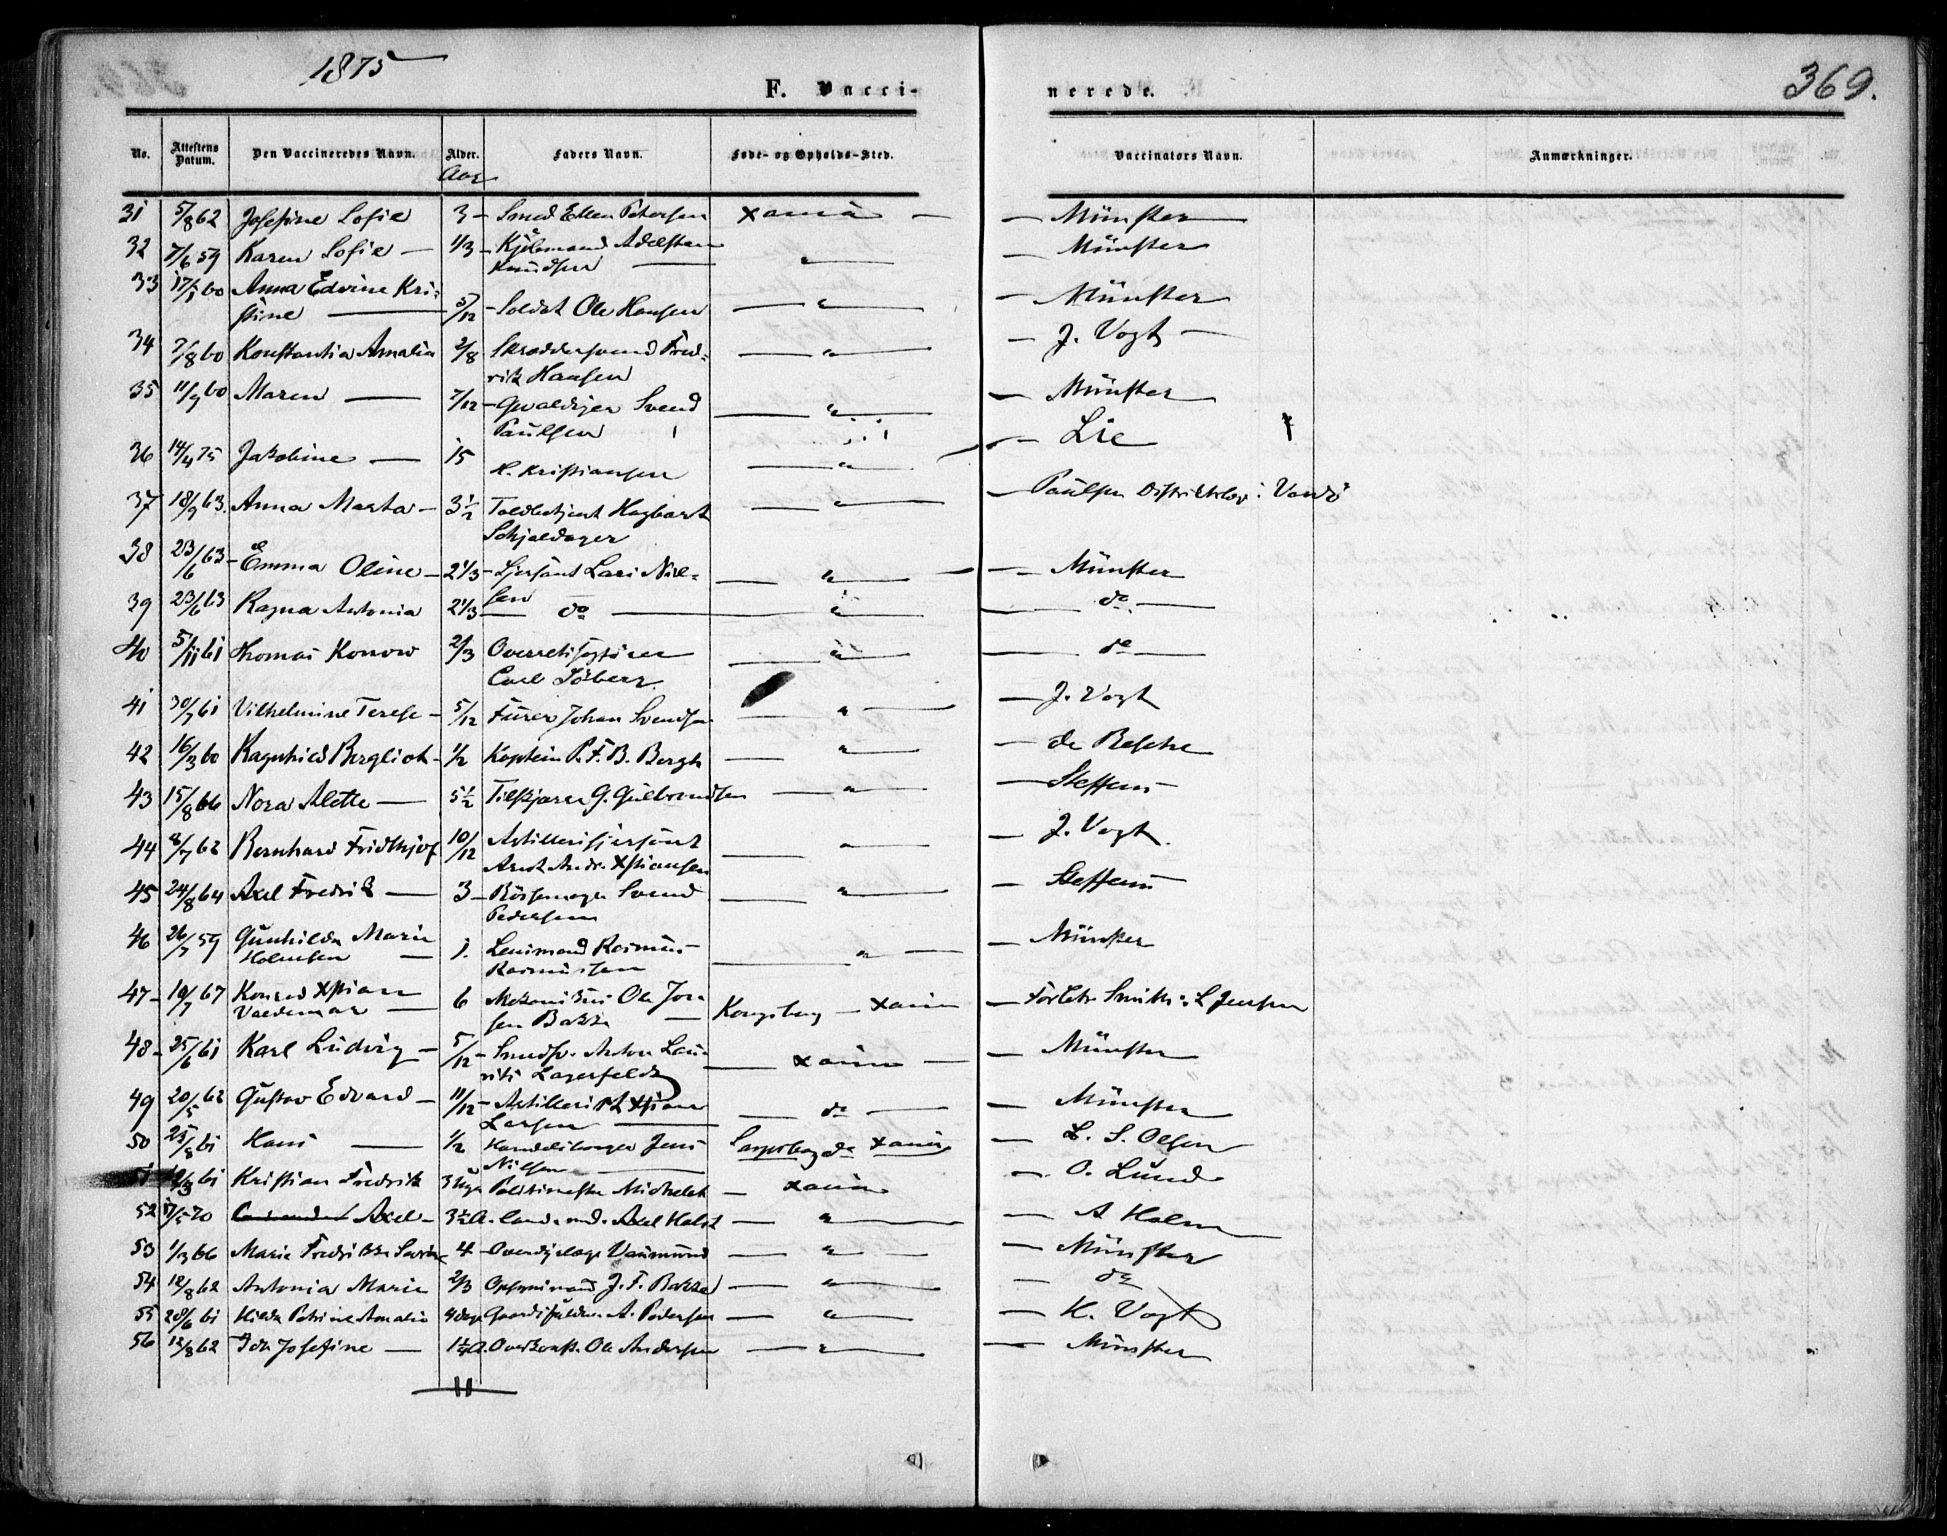 1875
F. Vacci-
nerede.
369.
No. Attestens Datum. Den Vaccineredes Navn. Alder. Faders Navn. Føde- og Opholds-Sted. Vaccinators Navn. Anmærkninger.
Aar
31 5/8 62 Josefine Sofie 3 - Smed Ellen Petersen Xania — — Münster
32 7/6 59 Karen Sofie — 1/3 - Adelsten — Münster
Knudsen — „ —
33 17/1 60 Anna Edvine Kri-
stine — 5/12 - Soldat Ole Hansen — „ — — Münster
34 7/8 60 Konstantia Amalia 2/8 Skræddersvend Fred- — „ — — J. Vogt —
rik Hansen
35 11/9 60 Maren — 7/12 - Svend — „ — — Münster
Paulsen
36 14/4 75 Jakobine — 15 H. Kristiansen — „ — — Lie
37 18/9 63. Anna Marta - 3 1/2 Toldbetjent Hagbart — „ — — Paulsen i Vardö
Schjeldager
38 23/6 63 - Emma Oline - 2 1/3 - Sjersant Lars Niel- — „ — — Münster
sen
39 23/6 63 Ragna Antonia 2 1/3 — do — — „ — — do —
40 5/11 61 Thomas Konow 2/3 — „ — — do —
Carl
41 30/7 61 Vilhelmine Terese - 5/12 Furer Johan Svendsen — „ — — J. Vogt
42 16/3 60 Ragnhild Bergliot - 1/2 Kaptein P. F. B. Bergh — „ — — de Besche
43 15/8 66 Nora Alette — 5 1/2 Tilskjærer G. Gulbrandsen — „ — — Steffens
44 8/7 62 Bernhard Fridthjof 10/12 Artillerisjersant — „ — — J. Vogt.
Arnt Andr. Xstiansen
45 24/8 64 Axel Fredrik — 3 - Bössemager Svend — „ — — Steffens
Pedersen
46 26/7 59 Gunhilda Marie 1. Rasmus — Münster
Holmsen — Rasmussen — „ —
47 - 19/7 67 Konrad Xstian 6 Mekanikus Ole Jon- Kongsberg — Xania — Smith i L Jensen
Valdemar — sen Bakke —
48 - 25/6 61 Karl Ludvig - 5/12 - Smedsv. Anton Lau- — Xania — — Münster
rits Lagerfeldt
49 20/5 62 Gustav Edvard - 11/12 - Xstian — do — — Münster
Larsen —
50 25/8 61 Hans — 1/2 Handelsborger Jens Sarpsborg do Xania — L. S. Olsen
Nilsen —
51 61 Kristian Fredrik 3 Uger Politimester Michelet — Xania — O. Lund
52 17/5 70 Axel - 3 1/2 A. Cand. med. Axel Holst — „ — — A Holm
53 1/3 66 Marie Fredrikke Sevrine 4 - Vaumund — „ — — Münster
54 12/8 62 Antonia Marie 2/3 J. F. Bakke — „ — — do
55 28/6 61 Hilda Petrine Amalia A. Pedersen — „ — — K. Vogt
56 12/8 62 Ida Josefine — 1 1/4 A. Overkonst. Ole Andersen — „ — — Münster